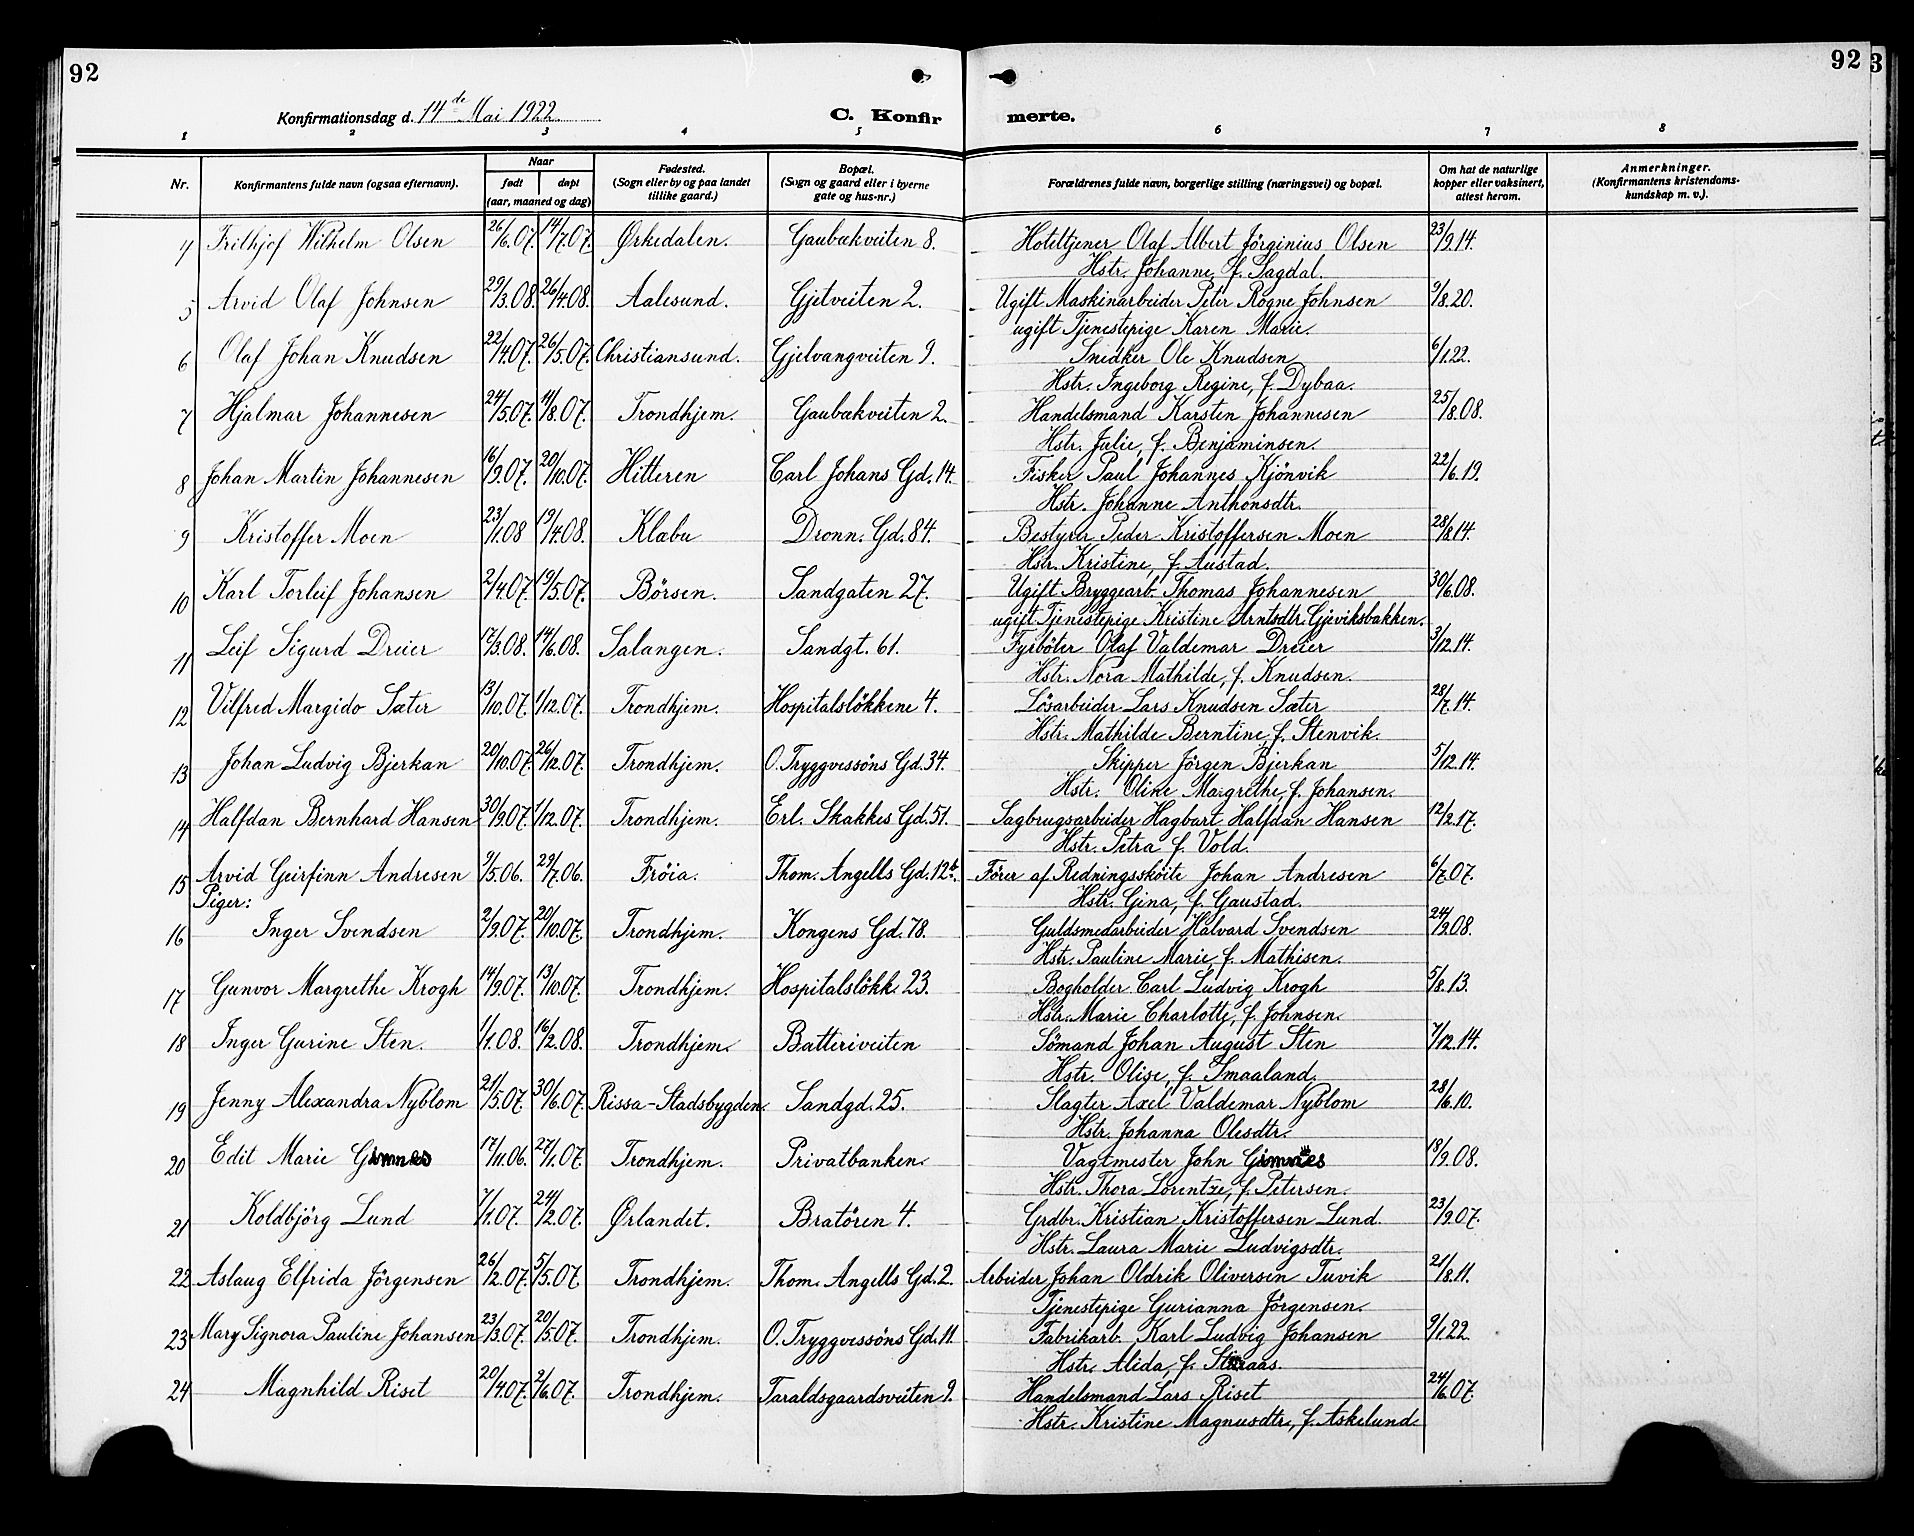 92 92
Konfirmationsdag d. 14de Mai 1922. C. Konfirmerte.
1 2 3 4 5 6 7 8
Nr. Konfirmantens fulde navn (ogsaa efternavn). Naar født døpt (aar, maaned og dag) Fødested. (Sogn eller by og paa landet tillike gaard.) Bopæl. (Sogn og gaard eller i byerne gate og hus-nr.) Forældrenes fulde navn, borgerlige stilling (næringsvei) og bopæl. Om hat de naturlige kopper eller vaksinert, attest herom. Anmerkninger. (Konfirmantens kristendomskundskap m. v.).
4 Frithjof Wilhelm Olsen 26/6.07. 14/7.07. Ørkedalen. Gaubækveiten 8. Hoteltjener Olaf Albert Jörginius Olsen 23/9.14.
Hstr. Johanne, f. Sagdal.
5 Arvid Olaf Johnsen 29/3.08. 26/4.08. Aalesund. Gjetveiten 2. Ugift Maskinarbeider Peter Rogne Johnsen 9/8.20.
ugift Tjenestepige Karen Marie.
6 Olaf Johan Knudsen 22/4.07. 26/5.07. Christiansund. Gjelvangveiten 9. Snidker Ole Knudsen 6/1.22.
Hstr. Ingeborg Regine, f. Dybaa.
7 Hjalmar Johannesen 24/5.07. 11/8.07. Trondhjem. Gaubækveiten 2. Handelsmand Karsten Johannesen 25/8.08.
Hstr. Julie, f. Benjaminsen.
8 Johan Martin Johannesen 16/9.07. 20/10.07. Hitteren Carl Johans Gd. 14. Fisker Paul Johannes Kjönvik 22/6.19.
Hstr. Johanne Anthonsdtr.
9 Kristoffer Moen 23/1.08 19/4.08. Klæbu Dronn. Gd. 84. Bestyrer Peder Kristoffersen Moen 28/8.14.
Hstr. Kristine, f. Austad.
10 Karl Torleif Johansen 2/4.07. 19/5.07. Börsen. Sandgaten 27. Ugift Bryggearb. Thomas Johannesen 30/6.08.
ugift Tjenestepige Kristine Arntsdtr. Gjeviksbakken.
11 Leif Sigurd Dreier 17/3.08. 14/6.08. Salangen. Sandgt. 61. Fyrböter Olaf Valdemar Dreier 3/12.14.
Hstr. Nora Mathilde, f. Knudsen.
12 Vilfred Margido Sæter 13/10.07. 1/12.07. Trondhjem. Hospitalslökkene 4. Lösarbeider Lars Knudsen Sæter 28/7.14.
Hstr. Mathilde Berntine, f. Stenvik.
13 Johan Ludvig Bjerkan 20/10.07. 26/12.07. Trondhjem. O. Tryggvessöns Gd. 34. Skipper Jörgen Bjerkan 5/12.14.
Hstr. Oline Margrethe, f. Johansen.
14 Halfdan Bernhard Hansen 30/9.07. 1/12.07. Trondhjem. Erl. Skakkes Gd. 51. Sagbrugsarbeider Hagbart Halfdan Hansen 12/2.17.
Hstr. Petra f. Vold.
15 Arvid Geirfinn Andresen 9/5.06. 29/7.06. Fröia. Thom. Angells Gd. 12b. Förer af Redningsskøite Johan Andresen 6/7.07.
Piger: Hstr. Gina, f. Gaustad.
16 Inger Svendsen 2/9.07. 20/10.07. Trondhjem. Kongens Gd. 78. Guldsmedarbeider Halvard Svendsen 24/9.08.
Hstr. Pauline Marie, f. Mathisen.
17 Gunvor Margrethe Krogh 14/9.07. 13/10.07. Trondhjem. Hospitalslökk. 23. Bogholder Carl Ludvig Krogh 5/8.13.
Hstr. Marie Charlotte, f. Johnsen.
18 Inger Gurine Sten. 1/1.08. 16/2.08. Trondhjem. Batteriveiten Sömand Johan August Sten 7/12.14.
Hstr. Olise, f. Smaaland.
19 Jenny Alexandra Nyblom 21/5.07. 30/6.07. Rissa-Stadsbygden. Sandgd. 25. Slagter Axel Valdemar Nyblom 28/6.10.
Hstr. Johanna Olesdtr.
20 Edit Marie Gimnes 17/11.06. 27/1.07. Trondhjem. Privatbanken. Vagtmester John Gimnes 18/9.08.
Hstr. Thora Lorentze, f. Petersen.
21 Koldbjörg Lund 7/1.07. 24/2.07. Ørlandet. Bratören 4. Grdbr. Kristian Kristoffersen Lund. 23/9.07.
Hstr. Laura Marie Ludvigsdtr.
22 Aslaug Elfrida Jörgensen 26/2.07. 5/5.07. Trondhjem. Thom. Angells Gd. 2. Arbeider Johan Oldrik Oliversen Tuvik 21/8.11.
Tjenestepige Gurianna Jörgensen.
23 Mary Signora Pauline Johansen 23/3.07. 20/5.07. Trondhjem. O. Tryggvessöns Gd. 11. Fabrikarb. Karl Ludvig Johansen 9/1.22.
Hstr. Alida, f.
24 Magnhild Riset 20/4.07. 2/6.07. Trondhjem. Taraldsgaardsveiten 9. Handelsmand Lars Riset 24/6.07.
Hstr. Kristine Magnusdtr., f. Askelund